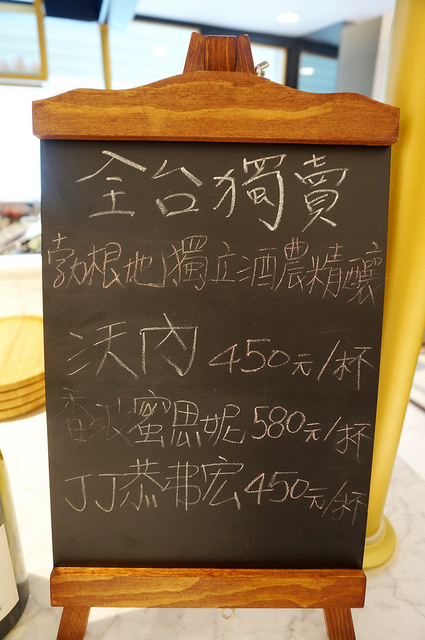 全台獨賣
勃根地獨立酒農精釀
沃內 450元/杯
香波蜜思妮 580元/杯
JJ恭弗宏 450元/杯